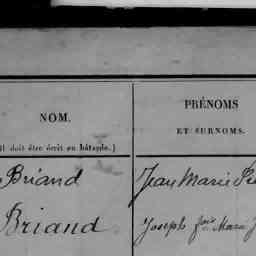 NOM.
PRÉNOMS
ET SURNOMS.
il doit être écrit en bâtarde.)
Briand
Jean Marie
Briand
Joseph fois Marie